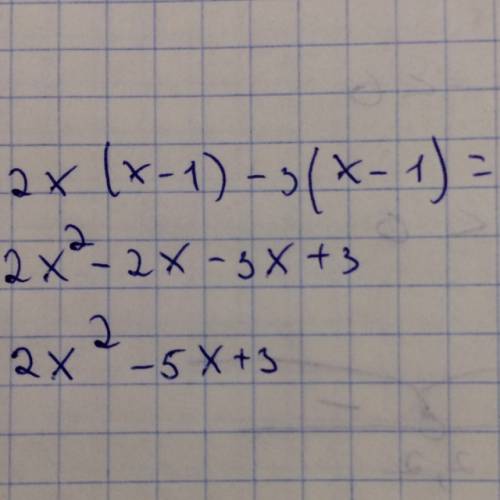 2x (x-1) - 3(x-1) =
2x² - 2x - 3x + 3
2x² - 5x + 3